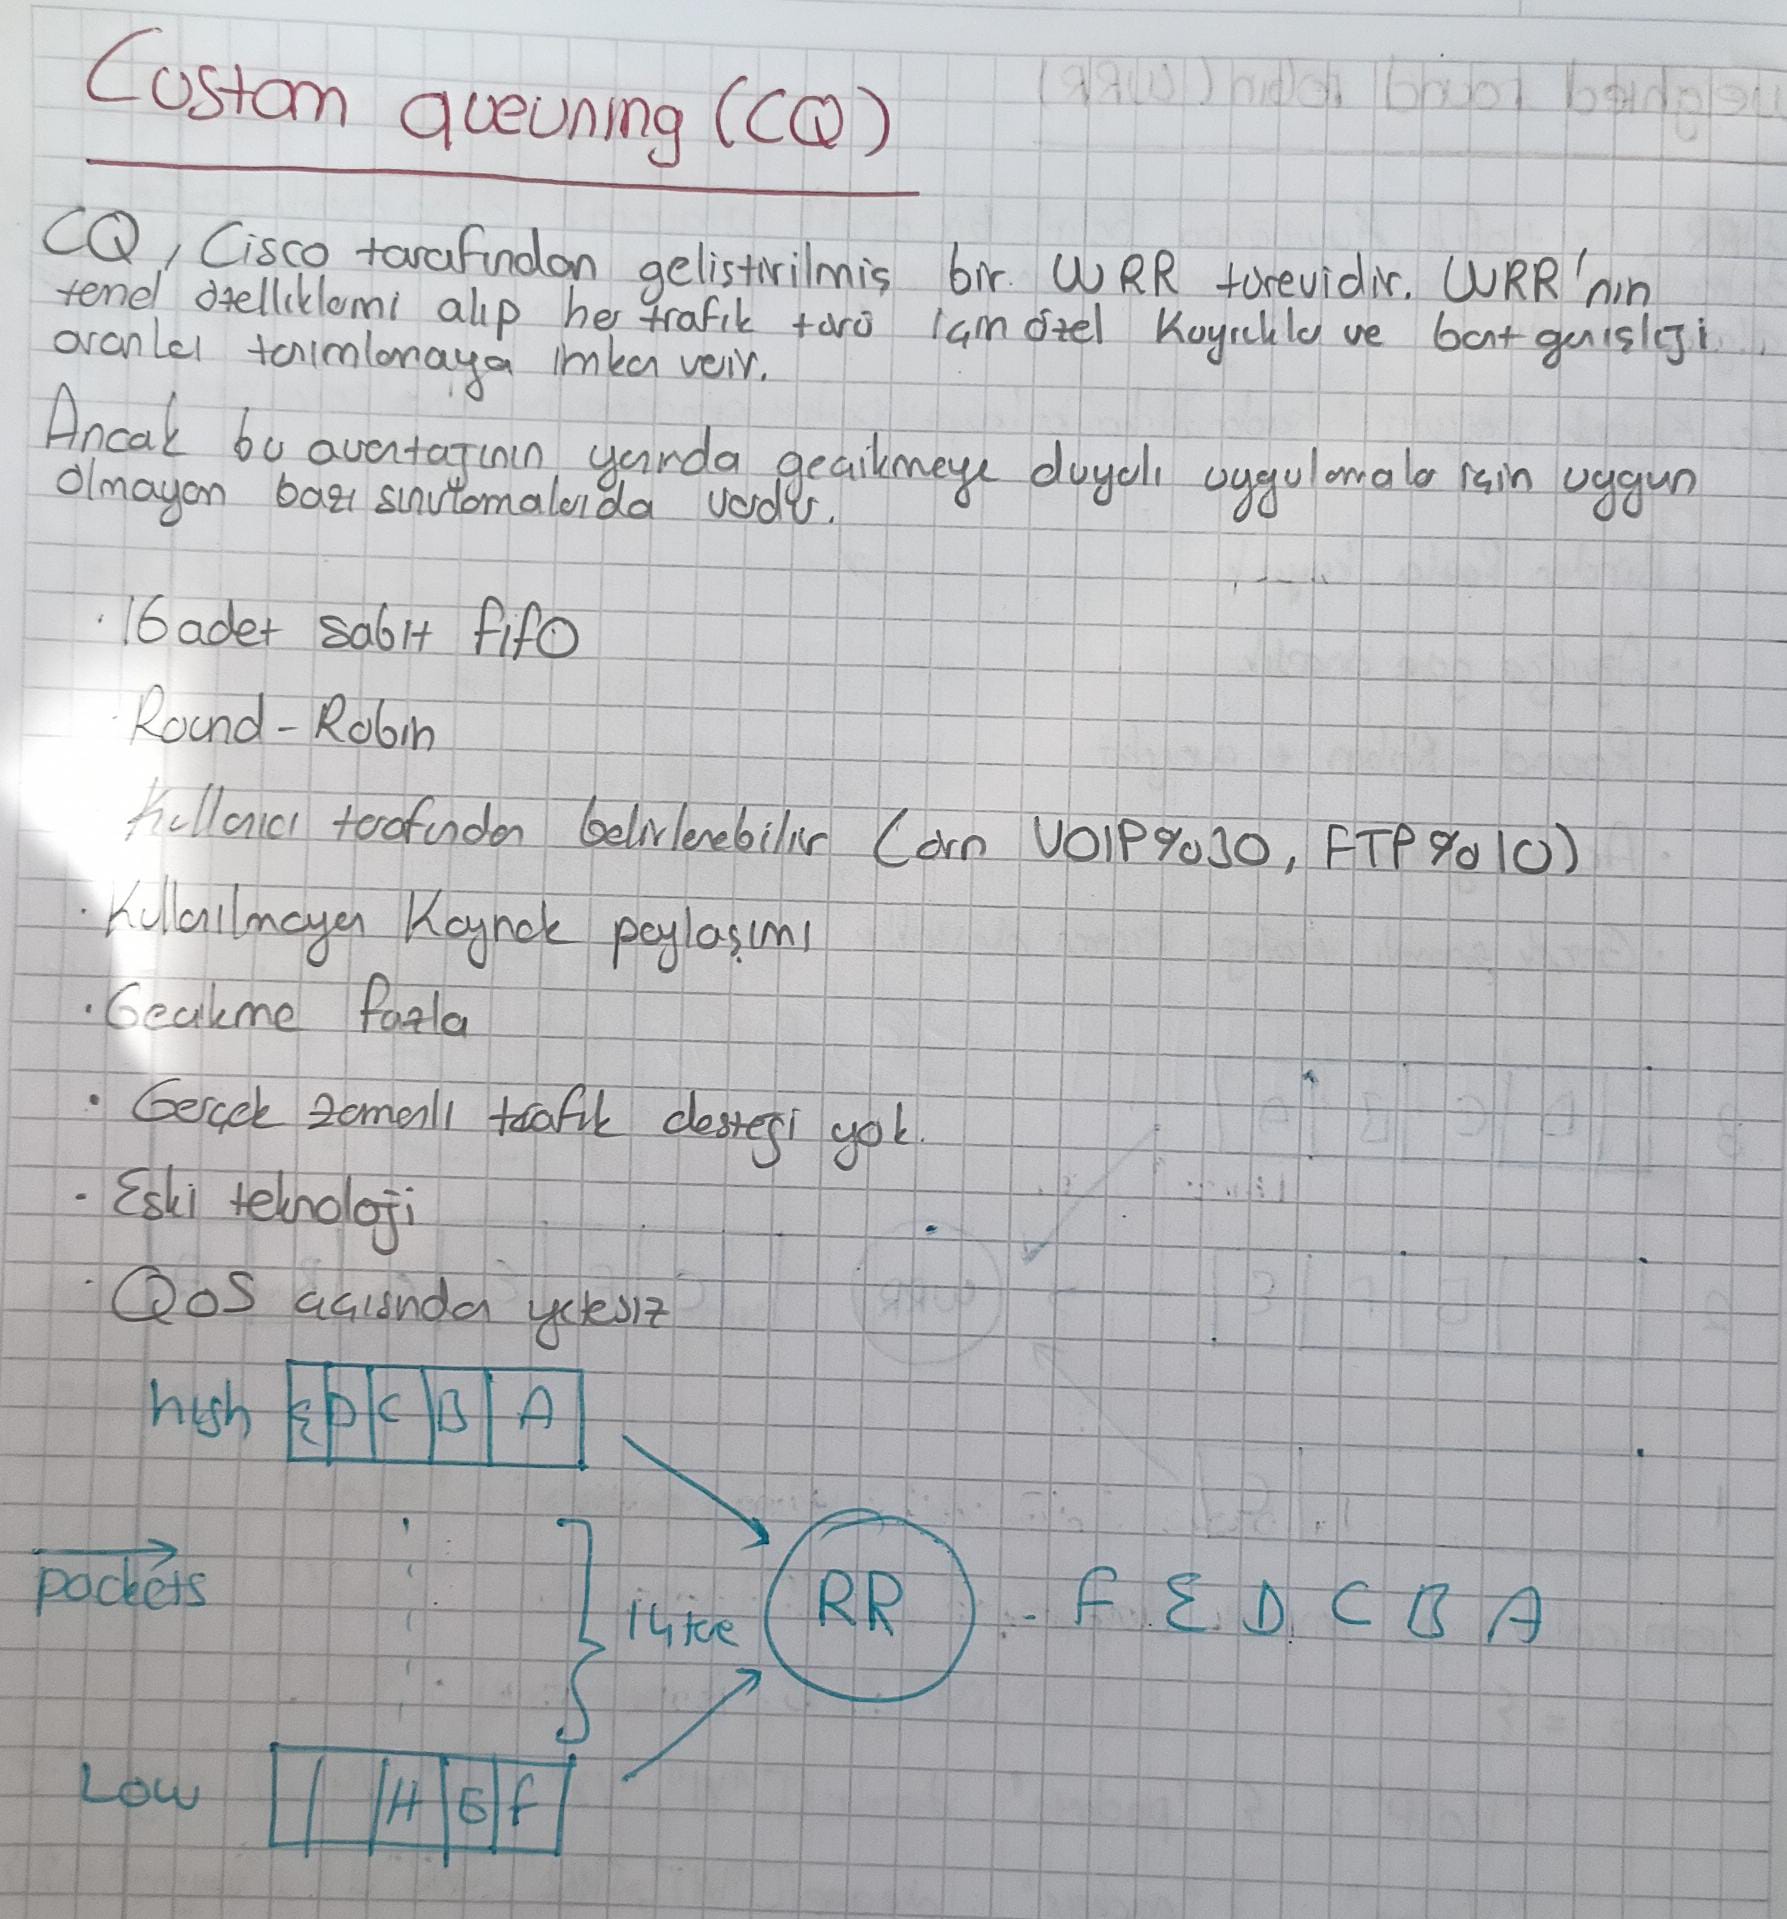 Custom queuning (CQ)
CQ, Cisco tarafından gelistirilmiş bir WRR türevidir. WRR'nin
temel özelliklerni alıp her trafik türü için özel kuyrukla ve bant genişliği
oranları tanımlamaya imkan verir.
Ancak bu avantajının yanında gecikmeye duyalı uygulamala için uygun
olmayan bazı sınırlamalarıda vardır.
· 16 adet sabit fifO
· Round-Robin
Kullanıcı tarafından belirlenebilir (örn VOIP %30, FTP %10)
· Kullanılmayan Kaynak paylaşımı
· Gecikme fazla
· Gerçek zamanlı trafik desteği yok.
· Eski teknoloji
· QoS açısından yetersiz
high E D C B A
packets
14 tane
RR
- F E D C B A
Low H G F